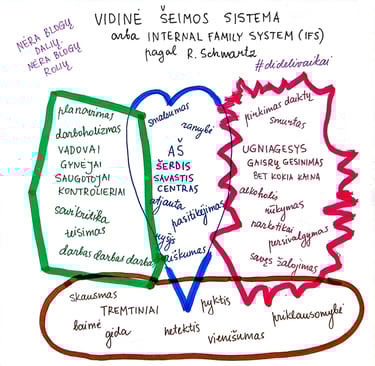 VIDINĖ ŠEIMOS SISTEMA
arba INTERNAL FAMILY SYSTEM (IFS)
pagal R. Schwartz
NĖRA BLOGŲ
DALIŲ,
NĖRA BLOGŲ
ROLIŲ
#dideli vaikai
planavimas
darboholizmas
VADOVAI
GYNĖJAI
SAUGOTOJAI
KONTROLIERIAI
savikritika
teisimas
darbas darbas darbas
smalsumas
ramybė
AŠ
ŠERDIS
SAVASTIS
CENTRAS
atjauta
pasitikėjimas
ryšys
aiškumas
pirkimas daiktų
smurtas
UGNIAGESYS
GAISRŲ GESINIMAS
BET KOKIA KAINA
alkoholis
rūkymas
narkotikai
persivalgymas
savęs žalojimas
skausmas
TREMTINIAI
baimė
gėda
pyktis
netektis
vienišumas
priklausomybė